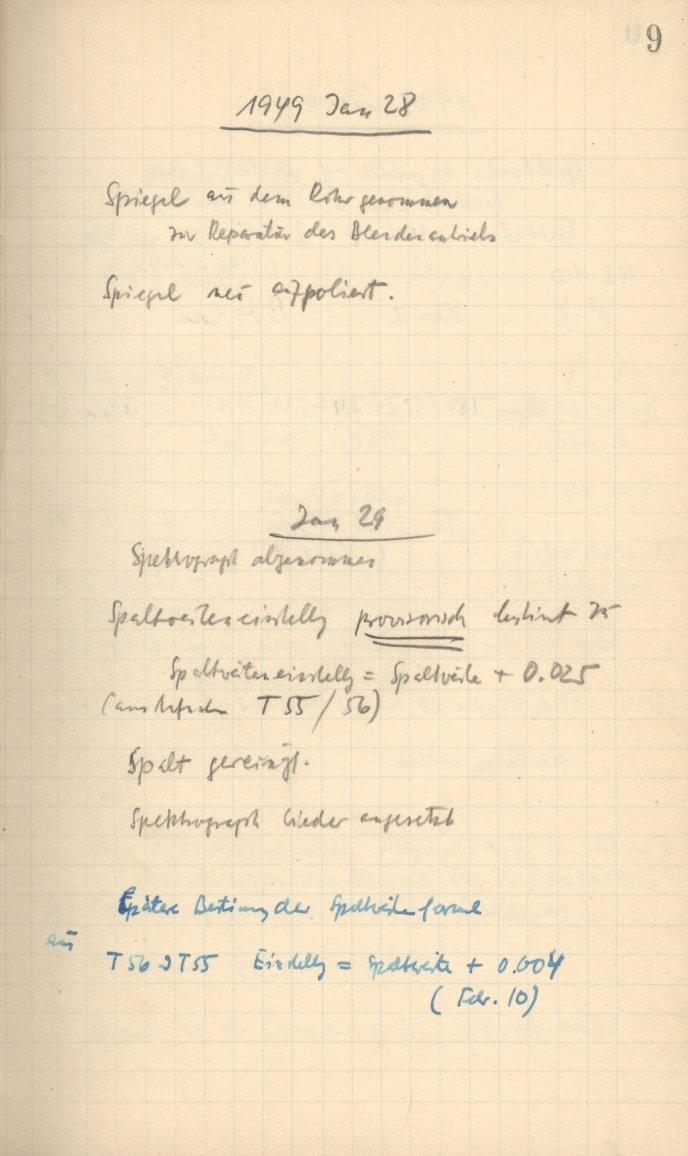 9
1949 Jan 28
Spiegel aus dem Rohr genommen
zur Reparatur des Blendenantriebs
Spiegel neu aufpoliert.
Jan 29
Spektrograph abgenommen
Spaltweiteneinstellg provisorisch bestimt zu
Spaltweiteneinstellg = Spaltweite + 0.025
(aus T55/56)
Spalt gereinigt.
Spektrograph wieder angesetzt
Spätere Bestimung der Spaltweitenformel
aus
T56 T55 Einstellg = Spaltweite + 0.004
(Febr. 10)